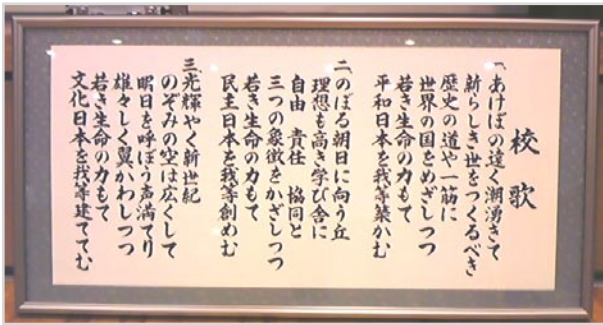 校歌
一、あけぼの遠く潮湧きて
新らしき世をつくるべき
歴史の道や一筋に
世界の国をめざしつつ
若き生命の力もて
平和日本を我等築かむ
二、のぼる朝日に向う丘
理想も高き学び舎に
自由 責任 協同と
三つの象徴をかざしつつ
若き生命の力もて
民主日本を我等創めむ
三、光輝やく新世紀
のぞみの空は広くして
明日を呼ぼう声満てり
雄々しく翼かわしつつ
若き生命の力もて
文化日本を我等建ててむ